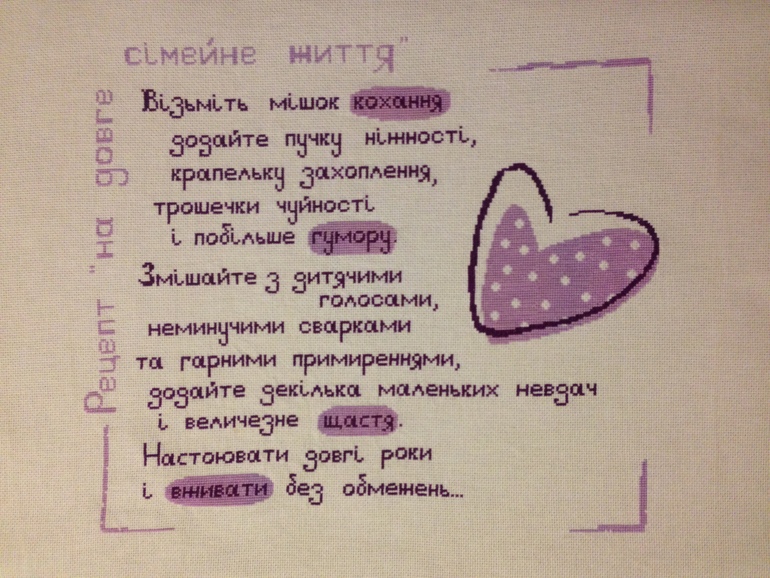 Рецепт "на довге
сімейне життя"
Візьміть мішок кохання
додайте пучку ніжності,
крапельку захоплення,
трошечки чуйності
і побільше гумору.
Змішайте з дитячими
голосами,
неминучими сварками
та гарними примиреннями,
додайте декілька маленьких невдач
і величезне щастя.
Настоювати довгі роки
і вживати без обмежень...